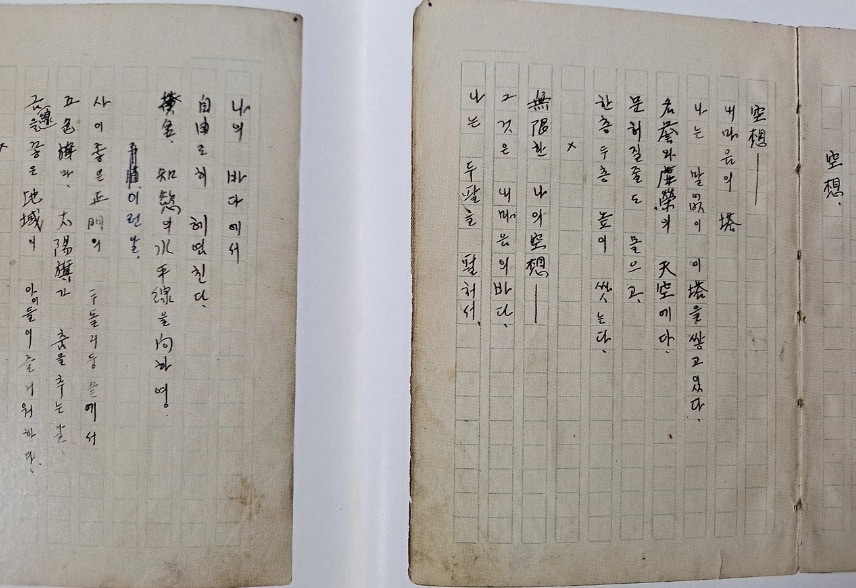 空想.
空想——
내마음의 塔
나는 말없이 이塔을 쌓고있다.
名誉와虛榮의 天空에다.
문허질줄도 몰으고,
한층두층 높이 쌋는다.
×
無限한 나의空想——
그것은 내마음의바다.
나는 두팔을 펼처서.
나의 바다에서
自由로히 헤염친다.
黄金, 知慾의水平線을向하여.
이런날.
사이좋은正門의 두돌기둥끝에서
五色旗와, 太陽旗가 춤을추는날,
금線을끟은地域의 아이들이즐거워하다.
×